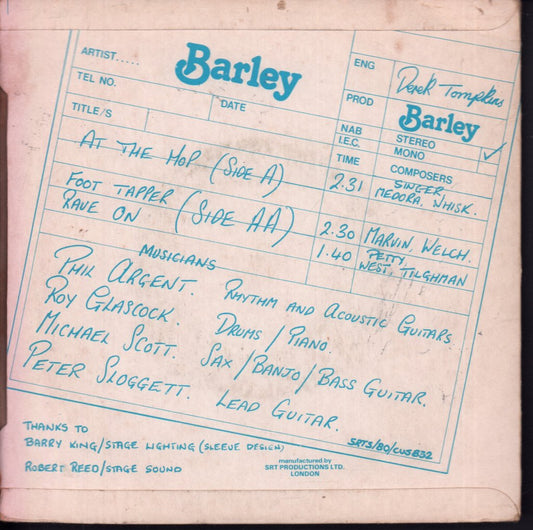 ARTIST..... Barley
TEL NO.
ENG Derek Tompkins
PROD Barley
TITLE/S DATE
NAB STEREO
I.E.C. MONO ✓
TIME COMPOSERS
AT THE HOP (SIDE A) 2.31 SINGER,
MEDORA, WHISK.
FOOT TAPPER (SIDE AA) 2.30 MARVIN, WELCH.
RAVE ON 1.40 PETTY,
WEST, TILGHMAN
MUSICIANS
PHIL ARGENT. RHYTHM AND ACOUSTIC GUITARS
ROY GLASCOCK. DRUMS / PIANO.
MICHAEL SCOTT. SAX / BANJO / BASS GUITAR.
PETER SLOGGETT. LEAD GUITAR.
THANKS TO
BARRY KING/STAGE LIGHTING (SLEEVE DESIGN)
ROBERT REED/STAGE SOUND
SRTS/80/CUS 832
manufactured by
SRT PRODUCTIONS LTD.
LONDON